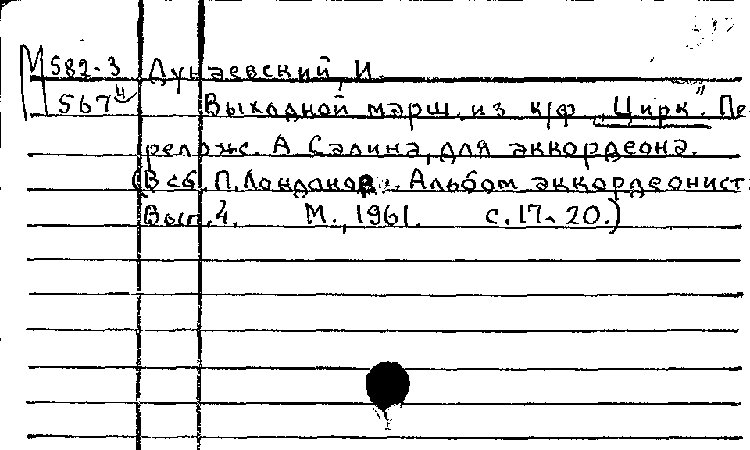 М 582-3 Дунаевский, И.
567 Выходной марш из к/ф „Цирк". Пе-
релож. А. Салина, для аккордеона.
(В сб. П. Лондонов. Альбом аккордеонист
Вып. 4. М., 1961. с. 17-20.)